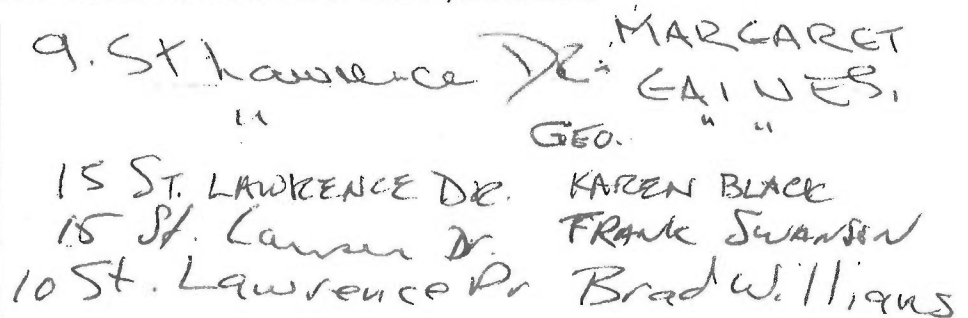 9. St Lawrence Dr. MARGARET GAINES,
" GEO. " "
15 ST. LAWRENCE DR. KAREN BLACK
15 St. Lawren Dr. FRANK SWANSON
10 St. Lawrence Dr Brad Williams